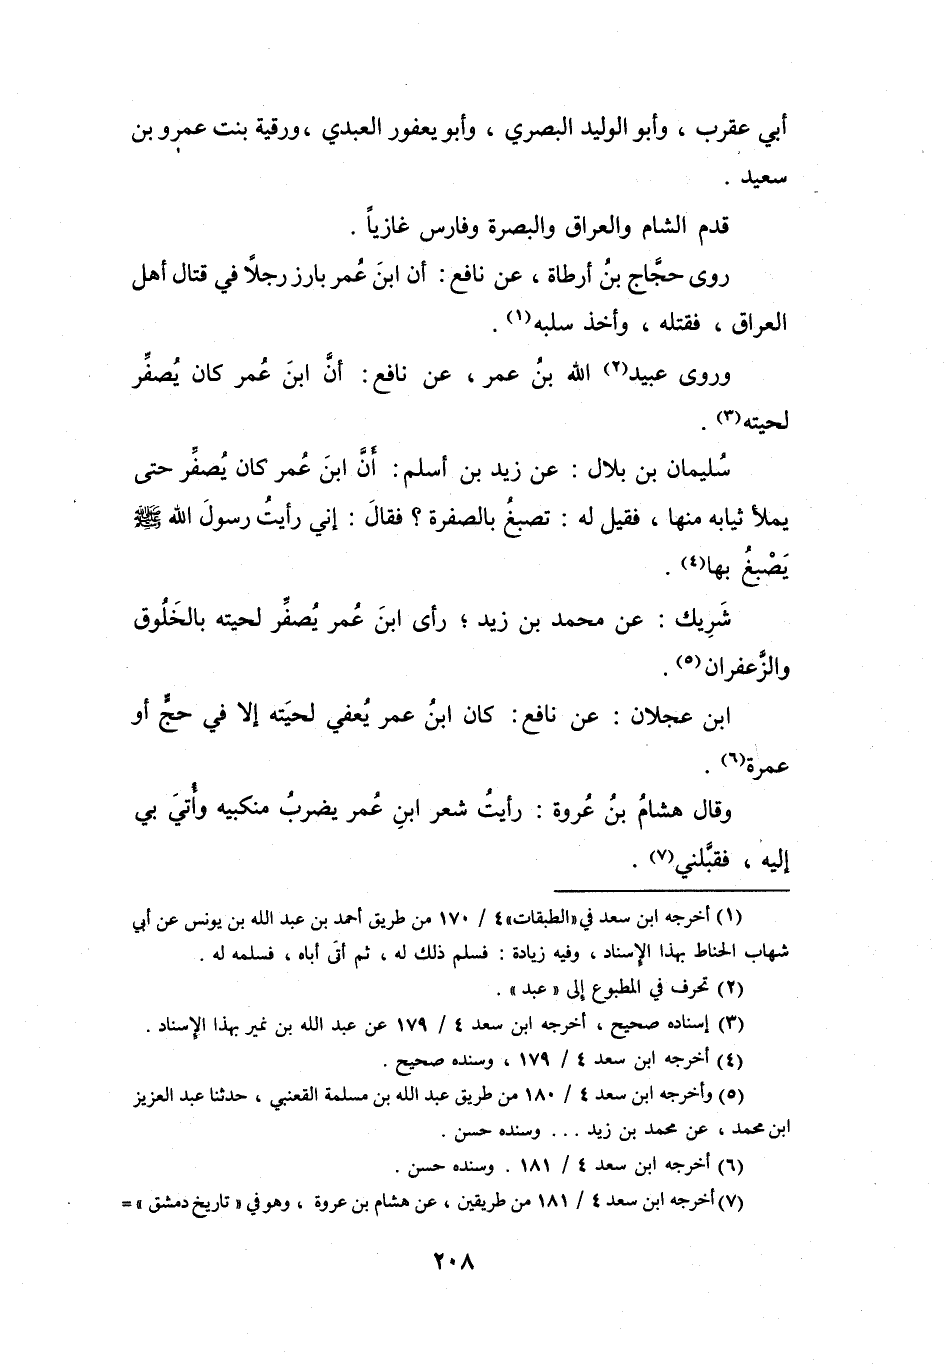 أبي عقرب ، وأبو الوليد البصري ، وأبو يعفور العبدي ، ورقية بنت عمرو بن
سعيد .
قدم الشام والعراق والبصرة وفارس غازياً .
روى حجَّاج بنُ أرطاة ، عن نافع : أن ابنَ عُمر بارز رجلاً في قتال أهل
العراق ، فقتله ، وأخذ سلبه(١) .
وروى عبيد(٢) الله بنُ عمر ، عن نافع : أنَّ ابنَ عُمر كان يُصفِّر
لحيته(٣) .
سُليمان بن بلال : عن زيد بن أسلم : أَنَّ ابنَ عُمر كان يُصفِّر حتى
يملأ ثيابه منها ، فقيل له : تصبغُ بالصفرة ؟ فقالَ : إني رأيتُ رسولَ الله ﷺ
يَصْبغُ بها(٤) .
شَرِيك : عن محمد بن زيد ؛ رأى ابنَ عُمر يُصفِّر لحيته بالخَلُوق
والزَّعفران(٥) .
ابن عجلان : عن نافع : كان ابنُ عمر يُعفي لحيَته إلا في حجٍّ أو
عمرة(٦) .
وقال هشامُ بنُ عُروة : رأيتُ شعر ابنِ عُمر يضربُ منكبيه وأُتيَ بي
إليه ، فقبَّلني(٧) .
(١) أخرجه ابن سعد في «الطبقات» ٤ / ١٧٠ من طريق أحمد بن عبد الله بن يونس عن أبي
شهاب الحناط بهذا الإسناد ، وفيه زيادة : فسلم ذلك له ، ثم أتى أباه ، فسلمه له .
(٢) تحرف في المطبوع إلى « عبد » .
(٣) إسناده صحيح ، أخرجه ابن سعد ٤ / ١٧٩ عن عبد الله بن نمير بهذا الإسناد .
(٤) أخرجه ابن سعد ٤ / ١٧٩ ، وسنده صحيح .
(٥) وأخرجه ابن سعد ٤ / ١٨٠ من طريق عبد الله بن مسلمة القعنبي ، حدثنا عبد العزيز
ابن محمد ، عن محمد بن زيد ... وسنده حسن .
(٦) أخرجه ابن سعد ٤ / ١٨١ . وسنده حسن .
(٧) أخرجه ابن سعد ٤ / ١٨١ من طريقين ، عن هشام بن عروة ، وهو في « تاريخ دمشق » =
٢٠٨